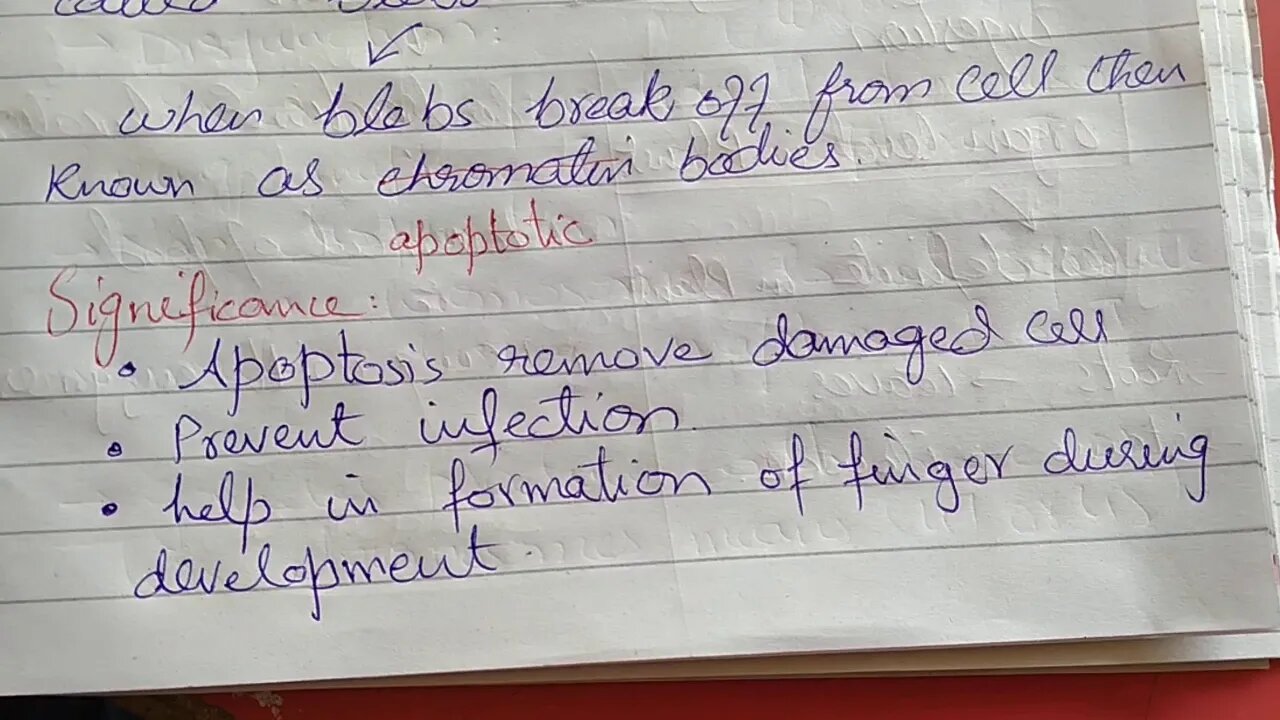 called blebs
when blebs break off from cell then
known as chromatin bodies.
apoptotic
Significance:
• Apoptosis remove damaged cell
• Prevent infection.
• help in formation of finger during
development.